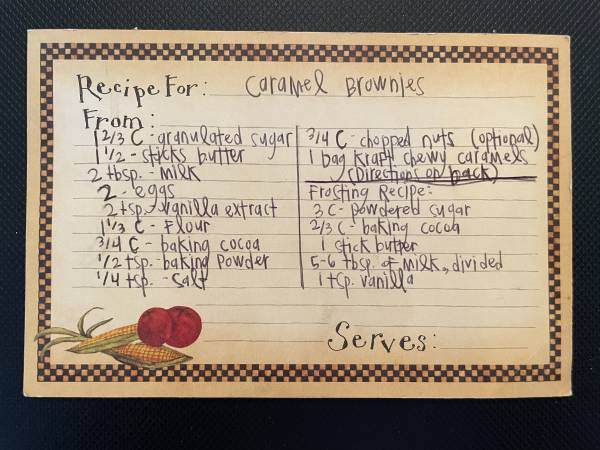 Recipe For: Caramel Brownies
From:
1 2/3 C - granulated sugar
1 1/2 - sticks butter
2 tbsp. - milk
2 - eggs
2 tsp. - vanilla extract
1 1/3 C - Flour
3/4 C - baking cocoa
1/2 tsp. - baking Powder
1/4 tsp. - Salt
3/4 C - chopped nuts (optional)
1 bag Kraft chewy caramels
(Directions on back)
Frosting Recipe:
3 C - powdered sugar
2/3 C - baking cocoa
1 stick butter
5-6 tbsp. of Milk, divided
1 tsp. vanilla
Serves: